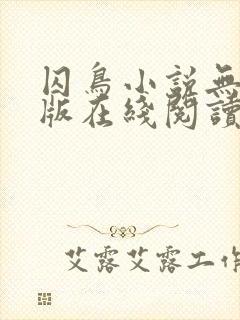 囚鳥小説無
版在綫閱讀
艾露艾露工作